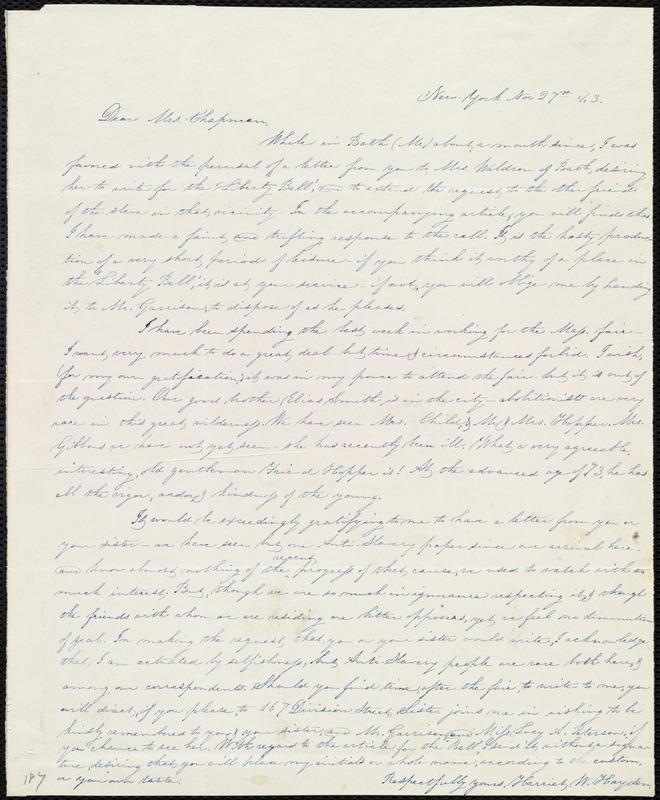 New-York Nov 27th /43.
Dear Mrs. Chapman,
While in Bath (Me) about a month since, I was
favored with the perusal of a letter from you to Mrs. Waldron of Bath, desiring
her to write for the "Liberty Bell", and to extend the request to the other friends
of the slave in that vicinity. In the accompanying article, you will find that
I have made a faint and trifling response to the call. It is the hasty produc-
tion of a very short period of leisure - if you think it worthy of a place in
the "Liberty Bell", it is at your service - if not, you will oblige me by handing
it to Mr. Garrison, to dispose of as he pleases.
I have been spending the last week in working for the Mass. fair -
I want very much to do a great deal but time & circumstances forbid. I wish,
for my own gratification, it was in my power to attend the fair - but it is out of
the question. Our good brother Elias Smith, is in the city - abolitionists are very
rare in this great wilderness. We have seen Mrs. Child, & Mr & Mrs. Hopper. Mrs.
Gibbons we have not yet seen - she has recently been ill. What a very agreeable,
interesting, old gentleman Friend Hopper is! At the advanced age of 73, he has
all the vigor, ardor, & kindness of the young.
It would be exceedingly gratifying to me to have a letter from you or
your sister - we have seen but one Anti-Slavery paper since our arrival here -
and know almost nothing of the recent progress of that cause, we used to watch with so
much interest. But, though we are so much in ignorance respecting it, & though
the friends with whom we are residing are bitter opposers, yet we feel no diminution
of zeal. In making the request that you or your sister would write, I acknowledge
that I am actuated by selfishness, but Anti Slavery people are rare both here, &
among our correspondents. Should you find time, after the fair, to write to me, you
will direct, if you please, to 167 Division Street. Sister joins me in wishing to be
kindly remembered to you, & your sister, and Mr. Garrison, and Miss Lucy A. if
you chance to see her. With regard to the article for the Bell I send it, without a signa-
ture desiring that you will place my initials or whole name, according to the custom,
or your own taste.
Respectfully yours, Harriet W. Hayden
187